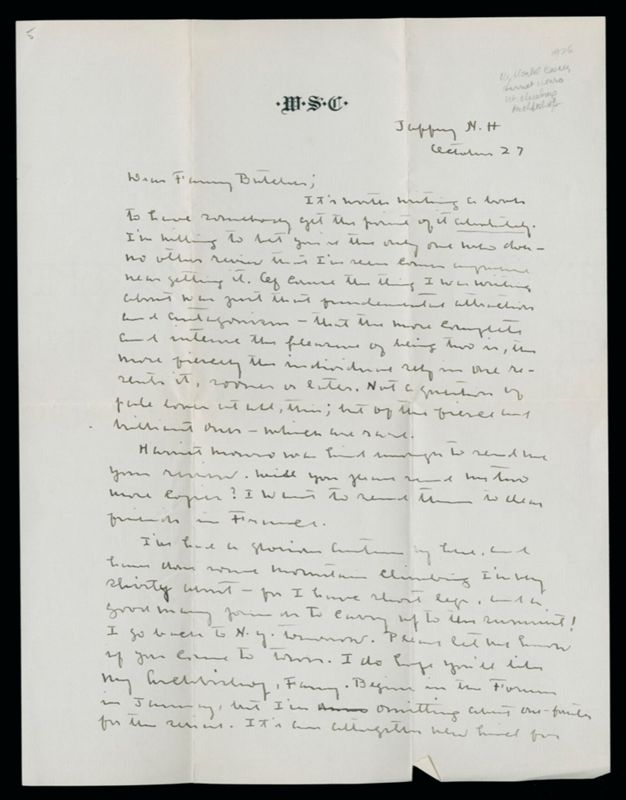 5
1926
My Mortal Enemy
Harriet Monro
Archbishop
·W·S·C·
Jaffrey N.H
October 27
Dear Fanny Butcher;
It's worth writing a book
to have somebody get the point of it absolutely.
I'm willing to bet you're the only one who does —
no other review that I've seen comes anywhere
near getting it. Of course the thing I was writing
about was just that fundamental attraction
and antagonism — that the more complete
and intense the pleasure of being two is, the
more fiercely the individual self in one re-
sents it, sooner or later. Not a question of
pale loves at all, this; but of the fierce and
brilliant ones — which are rare.
Harriet Monro was kind enough to send me
your review. Will you please send me two
more copies? I want to send them to dear
friends in France.
I've had a glorious autumn up here, and
have done some mountain climbing I'm very
about — for I have short legs, and a
good many pounds to carry up to the summit!
I go back to N.Y. tomorrow. Please let me know
if you come to town. I do hope you'll like
my Archbishop, Fanny. Begins in the Forum
in January, but I'm omitting about one-
for the serial. It's an altogether new kind for